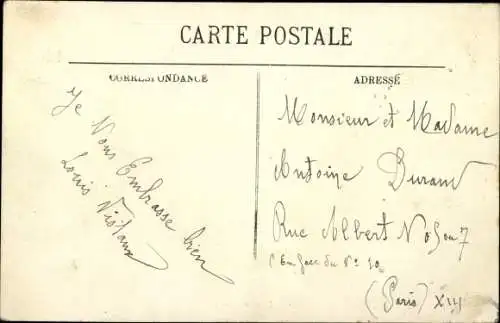 CARTE POSTALE
CORRESPONDANCE
ADRESSÉ
Je Vous Embrasse bien
Louis
Monsieur et Madame
Antoine Durand
Rue Albert No 7
(En face du Nº 10
(Paris) XIII